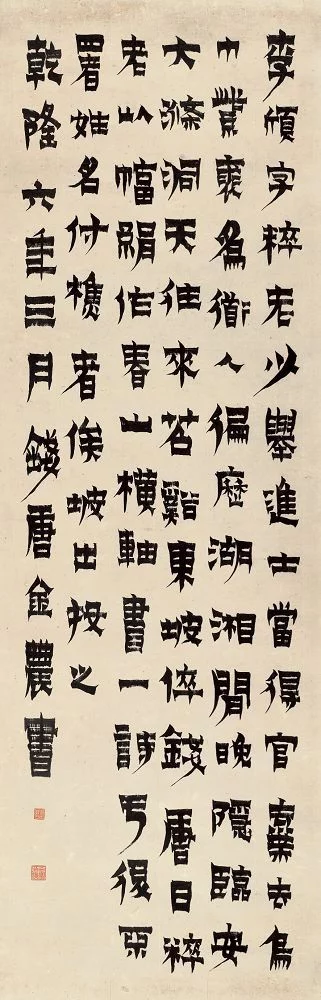 李頎字粹老以舉進士當得官棄去烏
巾裘為道人徧歷湖湘間晚隱臨安
大滌洞天往來苕谿東坡倅錢唐日粹
老以幅絹作春山橫軸書一詩亏後不
署姓名付樵者俟坡出投之
乾隆六年三月錢唐金農書